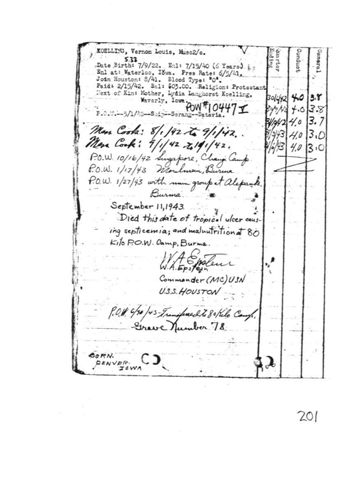 KOELLING, Vernon Louis, Musc2/c.
Date Birth: 7/9/22. Enl: 7/15/40 (6 Years) by
Enl at: Waterloo, Iowa. Pres Rate: 6/5/41.
Join Houston: 8/41. Blood Type: "O".
Paid: 2/15/42. Bal: $03.00. Religion: Protestant
Next of Kin: Mother, Lydia Langhorst Koelling.
Waverly, Iowa.
POW#10447 V
P.O.W.--3/1/42--Ship-Serang-Batavia.
Mess Cook: 8/1/42 to 9/1/42.
Mess Cook: 9/1/42 to 10/1/42.
P.O.W. 10/16/42 Singapore, Changi Camp
P.O.W. 1/17/43 Moulmein, Burma
P.O.W. 1/27/43 with main group at Alepauk,
Burma
September 11, 1943
Died this date of tropical ulcer caus-
ing septicemia; and malnutrition at 80
Kilo P.O.W. Camp, Burma.
W.A. Epstein
W.A. Epstein
Commander (MC) USN
U.S.S. HOUSTON
Transferred to 80 Kilo Camp.
Grave Number 78
BORN.
DENVER
IOWA
Quarter Ending
Conduct
General
4.0 3.8
4.0 3.8
4.0 3.7
4.0 3.0
4.0 3.0
201